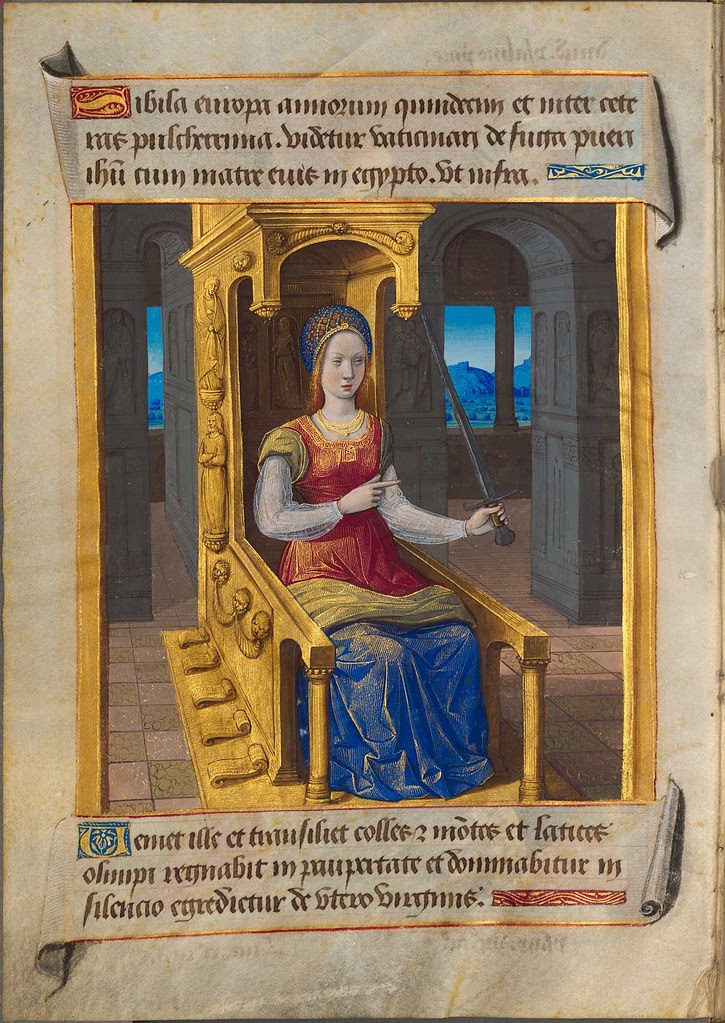 Sibila europa annorum quindecim et inter cete
ras pulcherrima. Videtur vaticinari de fuga pueri
ihū cum matre eius in egypto. Vt infra.
Veniet ille et transiliet colles ⁊ mōtes et latices
olimpi regnabit in paupertate et dominabitur in
silencio egredietur de vtero virginis: